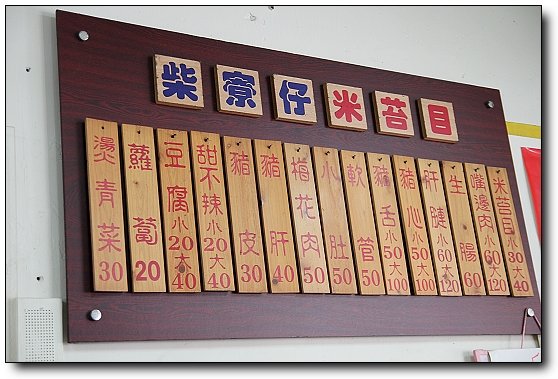 柴寮仔米苔目
燙青菜30
蘿蔔20
豆腐小20大40
甜不辣小20大40
豬皮30
豬肝40
梅花肉50
小肚50
軟管50
豬舌小50大100
豬心小50大100
肝連小60大120
生腸60
嘴邊肉小60大120
米苔目小30大40